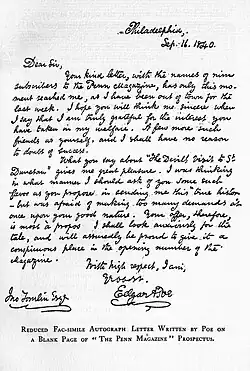 Philadelphia,
Sep. 16. 1840.
Dear Sir,
Your kind letter, with the names of nine
subscribers to the Penn Magazine, has only this mo-
ment reached me, as I have been out of town for the
last week. I hope you will think me sincere when
I say that I am truly grateful for the interest you
have taken in my welfare. A few more such
friends as yourself, and I shall have no reason
to doubt of success.
What you say about "The Devil's Visit to St.
Dunstan" gives me great pleasure. I was thinking
in what manner I should ask of you some such
favor as you propose in sending me this "true history"
— but was afraid of making too many demands at
once upon your good nature. Your offer, therefore,
is most à propos. I shall look anxiously for the
tale, and will assuredly be proud to give it a
conspicuous place in the opening number of the
Magazine.
With high respect, I am,
Yr ob. St.
Edgar A Poe
Jno Tomlin Esqr
REDUCED FAC-SIMILE AUTOGRAPH LETTER WRITTEN BY POE ON
A BLANK PAGE OF "THE PENN MAGAZINE" PROSPECTUS.